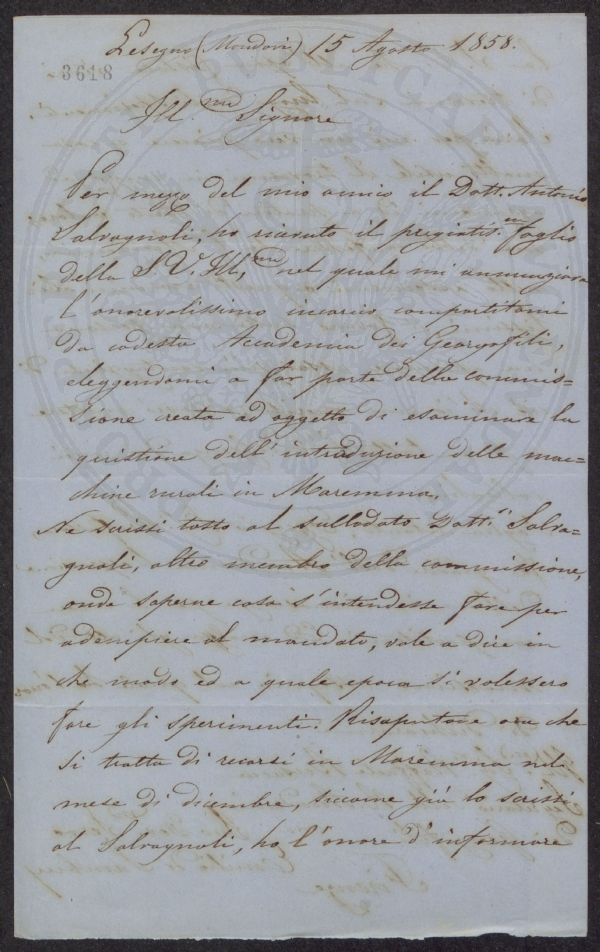 Lesegno (Mondovì) 15 Agosto 1858.
3618
Ill.mo Signore
Per mezzo del mio amico il Dott. Antonio
Salvagnoli, ho ricevuto il pregiatis.mo foglio
della S. V. Ill.ma nel quale mi annunziava
l'onorevolissimo incarico compartitomi
da codesta Accademia dei Georgofili,
eleggendomi a far parte della commis=
sione creata ad oggetto di esaminare la
quistione dell'introduzione delle mac=
chine rurali in Maremma.
Ne scrissi tosto al sullodato Dott. Salva=
gnoli, altro membro della commissione,
onde saperne cosa s'intendesse fare per
adempiere al mandato, vale a dire in
che modo ed a quale epoca si volessero
fare gli sperimenti. Risaputone ora che
si tratta di recarsi in Maremma nel
mese di dicembre, siccome già lo scrissi
al Salvagnoli, ho l'onore d'informare